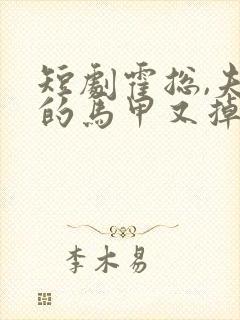 短劇霍总,夫
的馬甲又掉
李木易